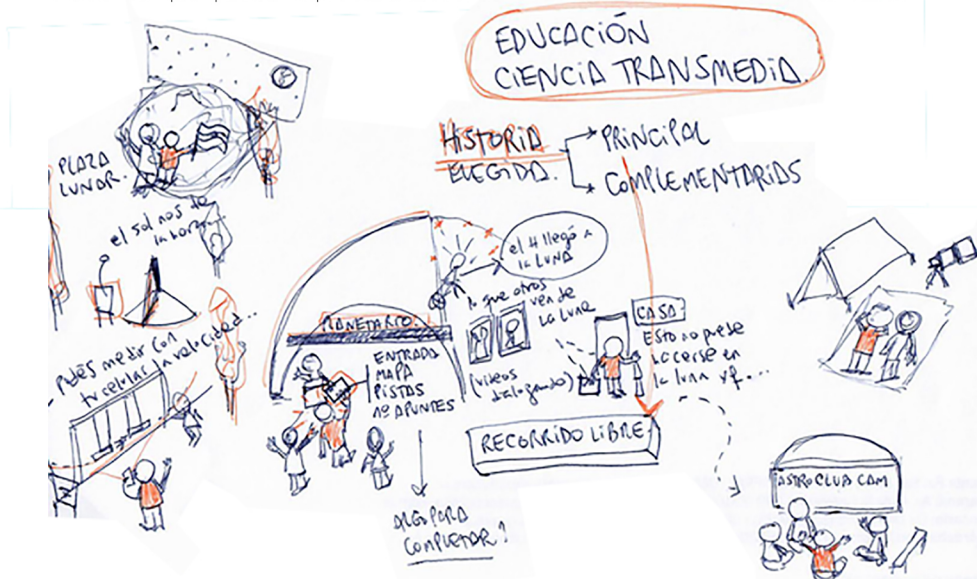 EDUCACIÓN
CIENCIA TRANSMEDIA.
HISTORIA
ELEGIDA.
PRINCIPAL
COMPLEMENTARIAS
PLAZA
LUNAR.
el sol nos da
la hora...
puedes medir con
tu celular la velocidad...
PLANETARIO.
ENTRADA
MAPA
PISTAS
NO APUNTES
ALGO PARA
COMPLETAR?
el 4 llegó a
la LUNA
lo que otros
ven de
la LUNA
(videos
dialogando)
CASA.
Esto no puede
hacerse en
la luna
RECORRIDO LIBRE
ASTROCLUB CAM